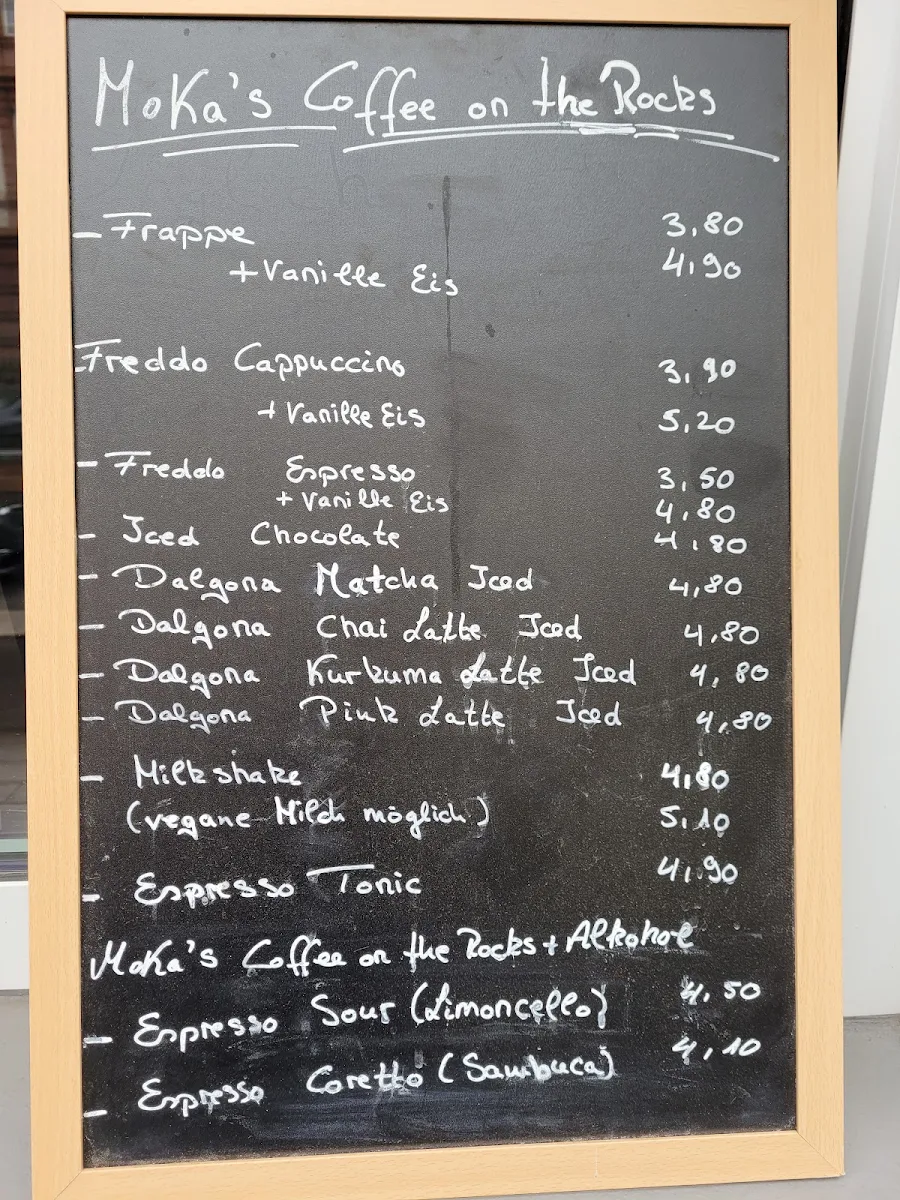 Moka's Coffee on the Rocks
- Frappe 3,80
+ Vanille Eis 4,90
Freddo Cappuccino 3,90
+ Vanille Eis 5,20
- Freddo Espresso 3,50
+ Vanille Eis 4,80
- Iced Chocolate 4,80
- Dalgona Matcha Iced 4,80
- Dalgona Chai Latte Iced 4,80
- Dalgona Kurkuma Latte Iced 4,80
- Dalgona Pink Latte Iced 4,80
- Milkshake 4,80
(vegane Milch möglich) 5,10
- Espresso Tonic 4,90
Moka's Coffee on the Rocks + Alkohol
- Espresso Sour (Limoncello) 4,50
- Espresso Coretto (Sambuca) 4,10